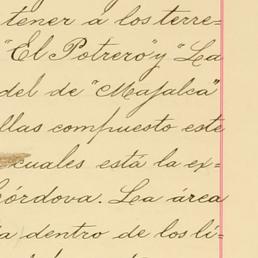 tener á los terre=
"El Potrero" y "La
del de "Majalca"
llas compuesto este
cuales está la ex=
córdova. La área
a dentro de los lí=